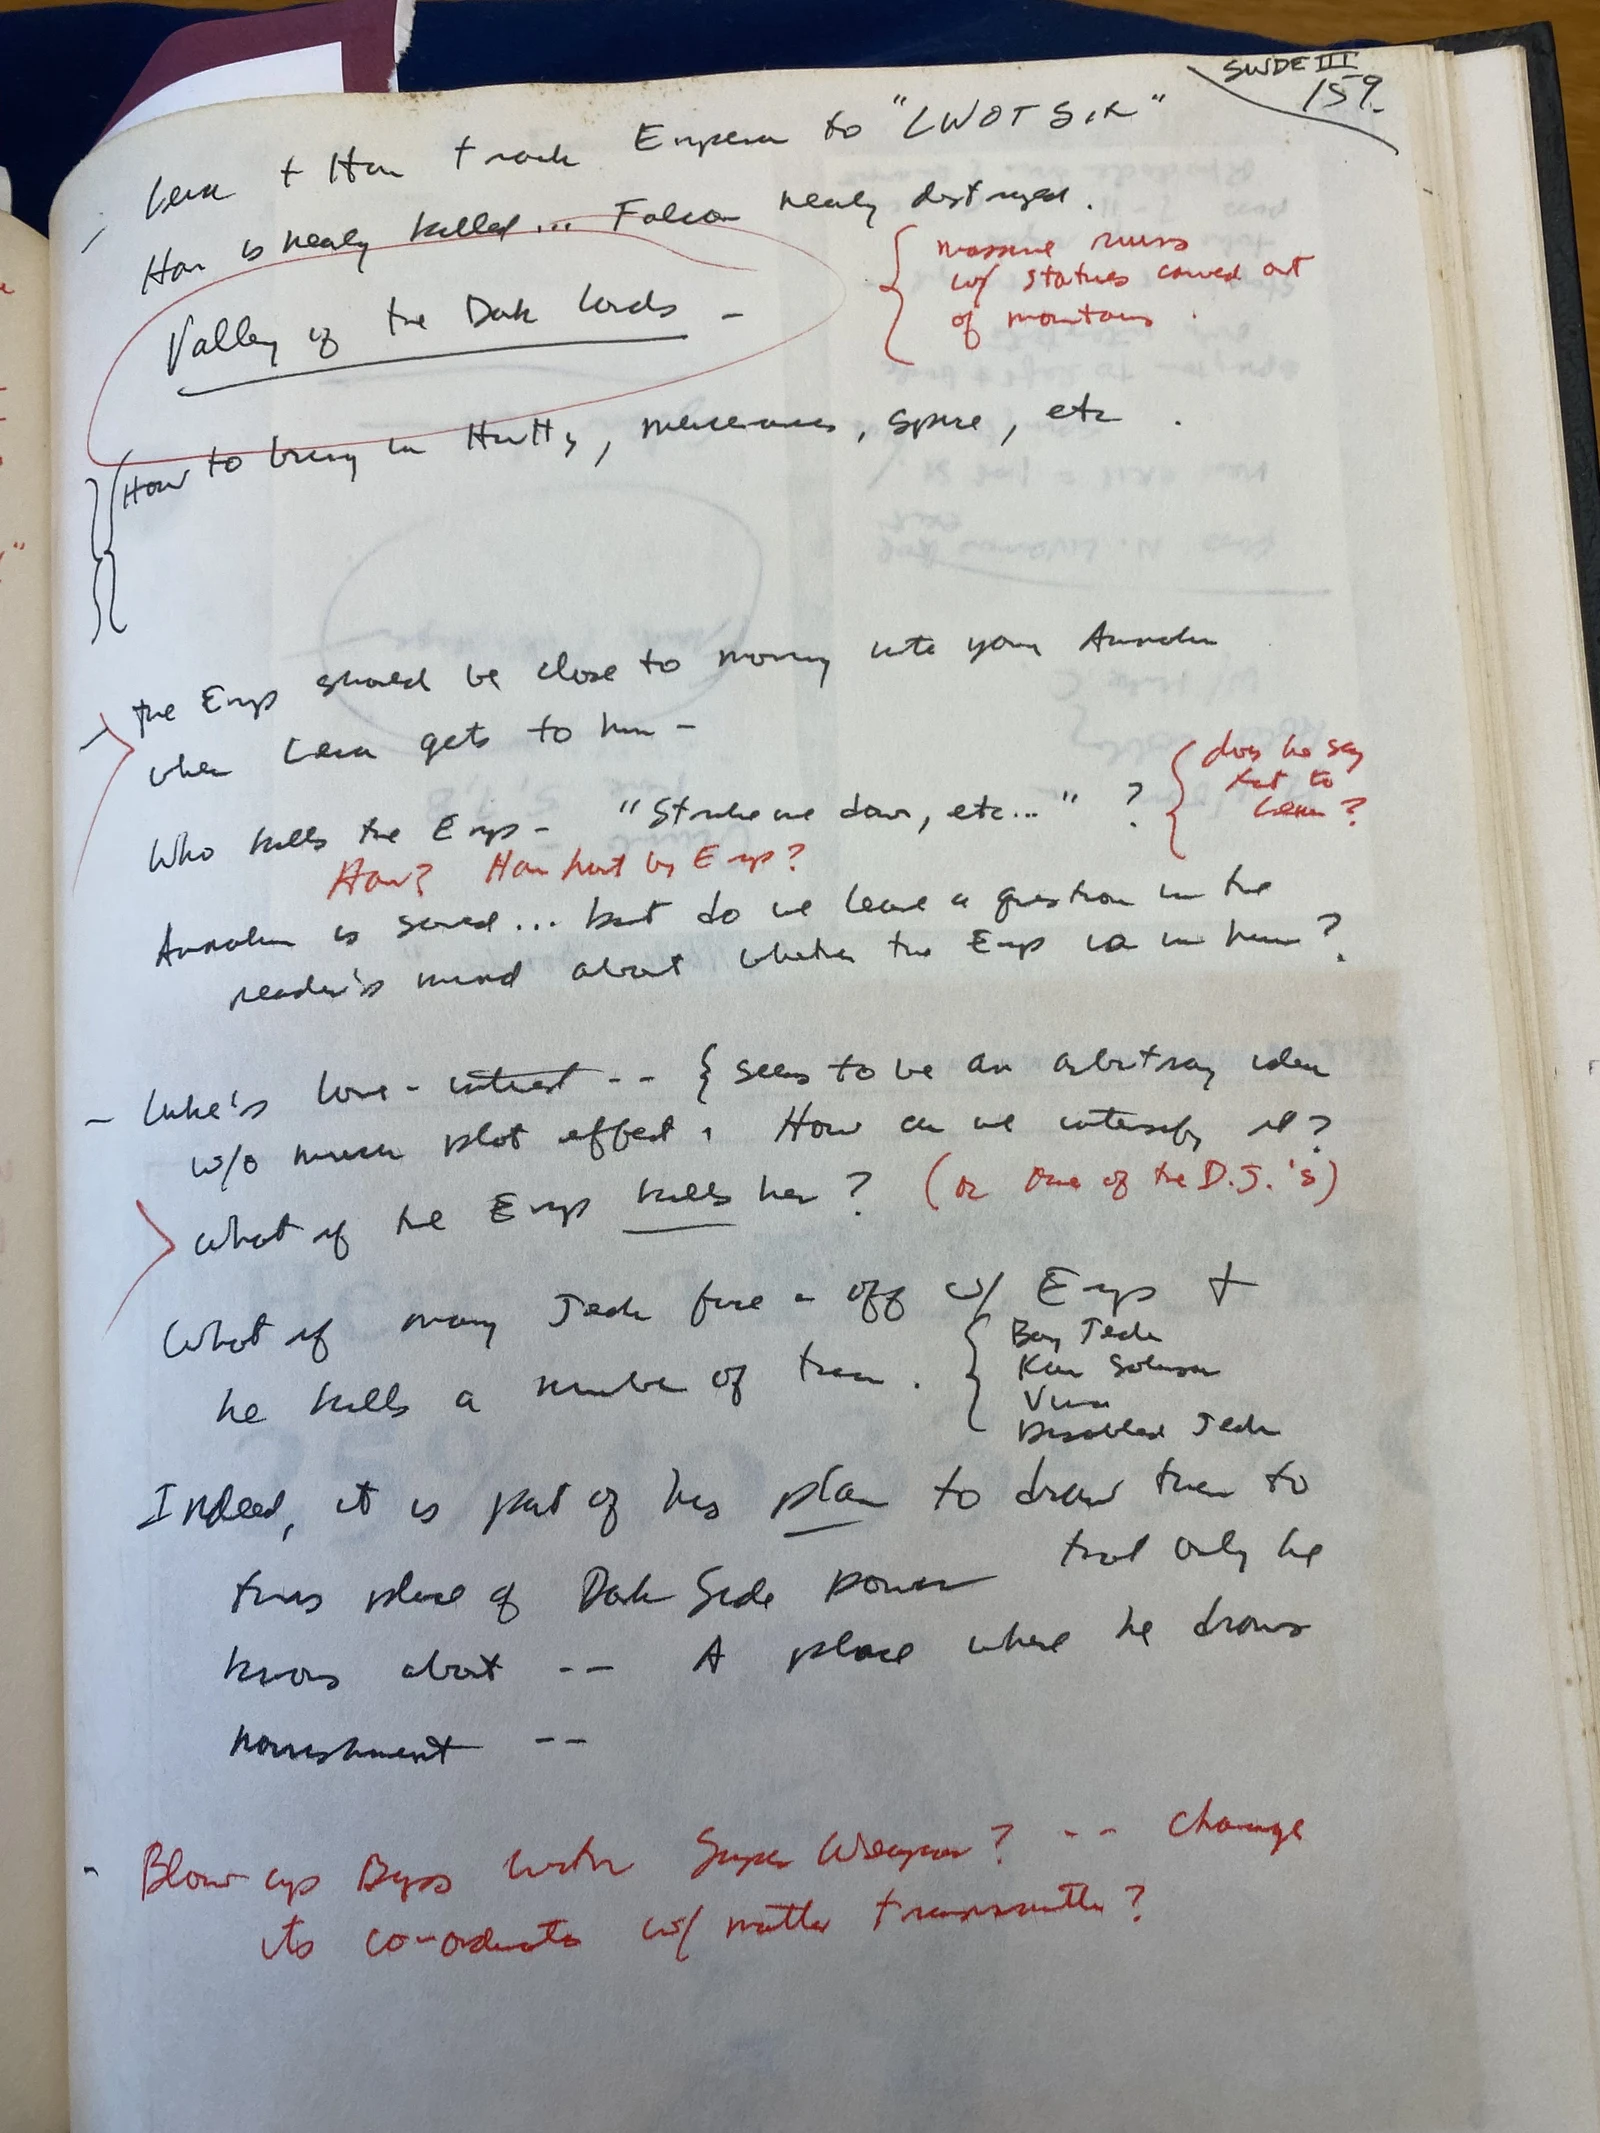 SWDE III
159.
Leia + Han track Emperor to "LWOTSIR"
Han is nearly killed... Falcon nearly destroyed.
Valley of the Dark Lords -
{ massive ruins
w/ statues carved out
of mountains.
How to bring in Hutts, mercenaries, spice, etc.
The Emp should be close to moving into young Anakin
when Leia gets to him -
Who kills the Emp - "Strike me down, etc..." ?
{ does he say
that to
Leia?
Han? Han hurt by Emp?
Anakin is saved... but do we leave a question in the
reader's mind about whether the Emp is in him?
- Luke's love-interest -- { seems to be an arbitrary idea
w/o much plot effect. How can we intensify it?
What if the Emp kills her? (or one of the D.J.'s)
What if many Jedi face-off w/ Emp +
he kills a number of them. {
Jedi
Kam Solusar
Vima
Disabled Jedi
Indeed, it is part of his plan to draw them to
this place of Dark Side power that only he
knows about -- A place where he draws
nourishment --
- Blow up Byss with Super Weapon? -- change
its co-ordinates w/ matter transmitter?